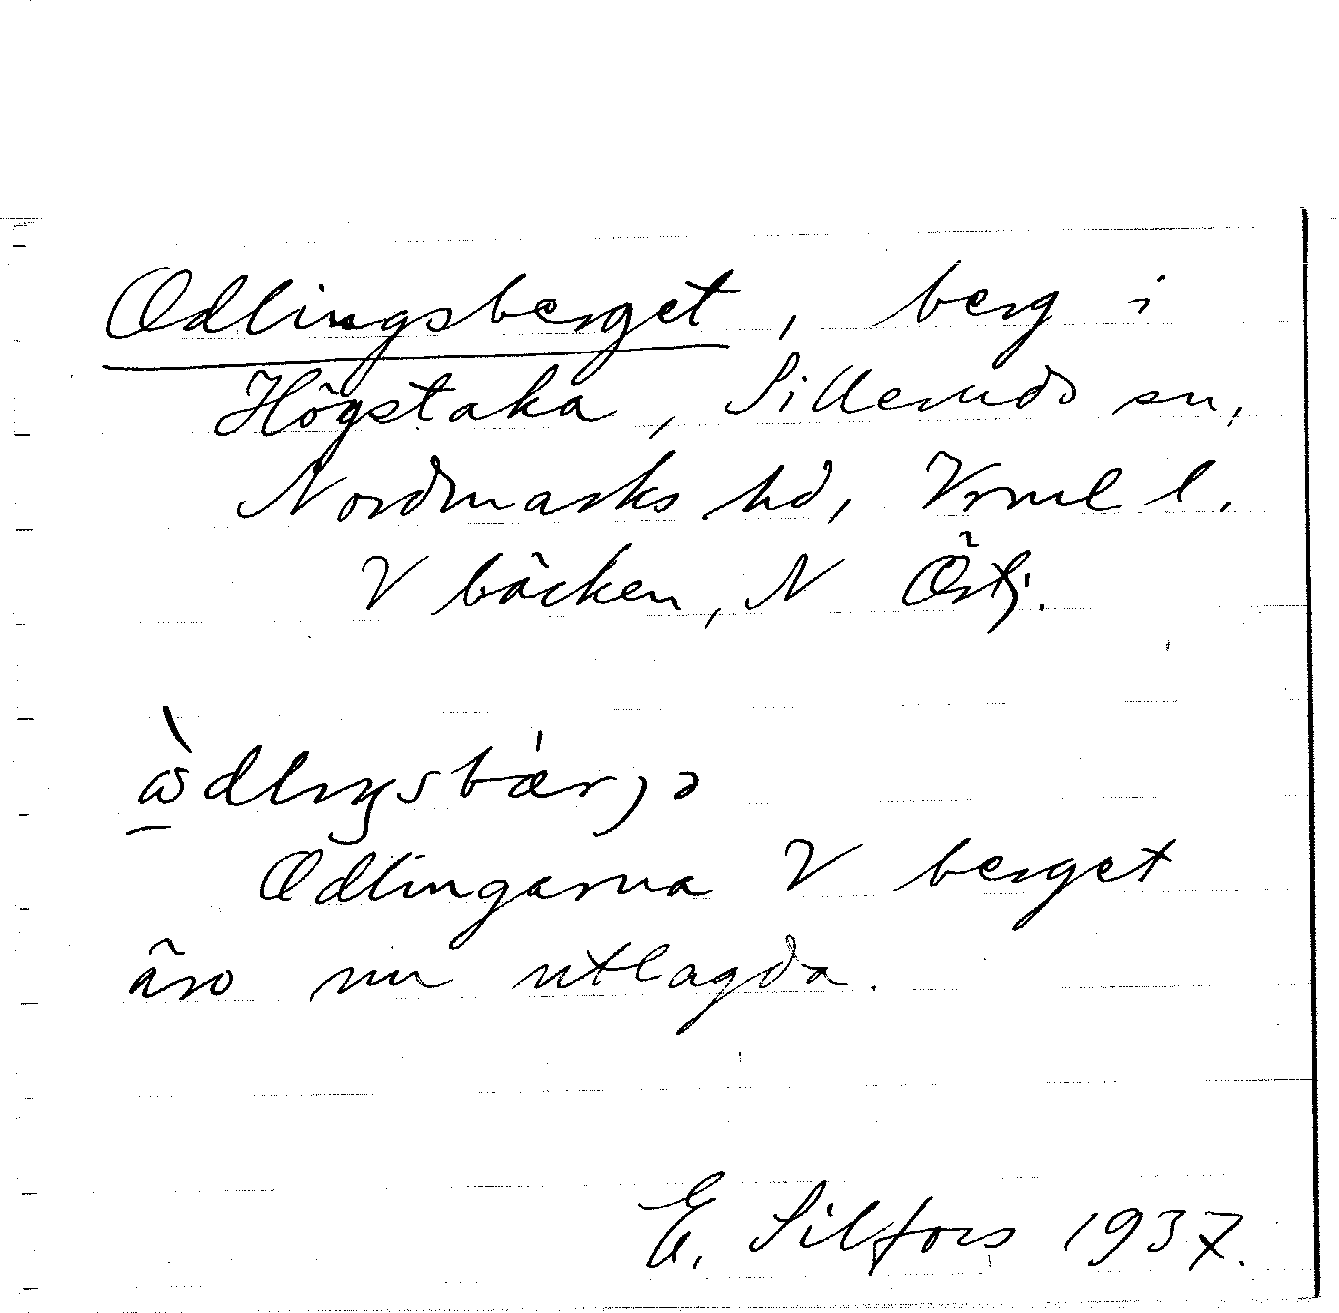 Odlingsberget, berg i
Högstaka, Silleruds sn,
Nordmarks hd, Vrml l.
V bäcken, N Östj.
Odlingarna V berget
äro nu utlagda.
E. Silfors 1937.